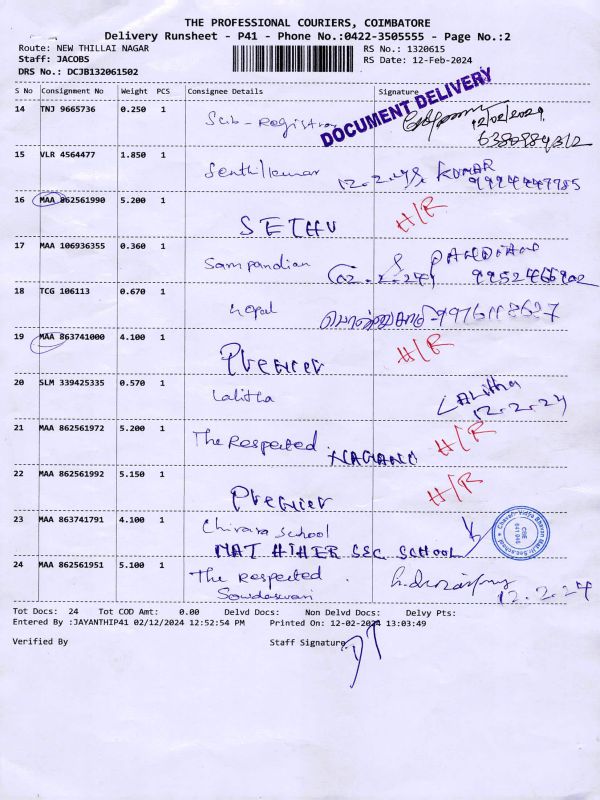 THE PROFESSIONAL COURIERS, COIMBATORE
Delivery Runsheet - P41 - Phone No.:0422-3505555 - Page No.:2
Route: NEW THILLAI NAGAR RS No.: 1320615
Staff: JACOBS RS Date: 12-Feb-2024
DRS No.: DCJB132061502
S No Consignment No Weight PCS Consignee Details Signature
DOCUMENT DELIVERY
14 TNJ 9665736 0.250 1 Sub-Registrar 12/02/2024
15 VLR 4564477 1.850 1 Senthilkumar 12.2.24 KUMAR
16 MAA 862561990 5.200 1 SETHU H/R
17 MAA 106936355 0.360 1 Sampandian S PANDIAN
18 TCG 106113 0.670 1 Gopal
19 MAA 863741000 4.100 1 Premier H/R
20 SLM 339425335 0.570 1 Lalitha LAlitha
12.2.24
21 MAA 862561972 5.200 1 The Respected H/R
22 MAA 862561992 5.150 1 Premier H/R
23 MAA 863741791 4.100 1 school
MAT HIHER SEC SCHOOL
24 MAA 862561951 5.100 1 The Respected
12.2.24
Tot Docs: 24 Tot COD Amt: 0.00 Delvd Docs: Non Delvd Docs: Delvy Pts:
Entered By :JAYANTHIP41 02/12/2024 12:52:54 PM Printed On: 12-02-2024 13:03:49
Verified By Staff Signature